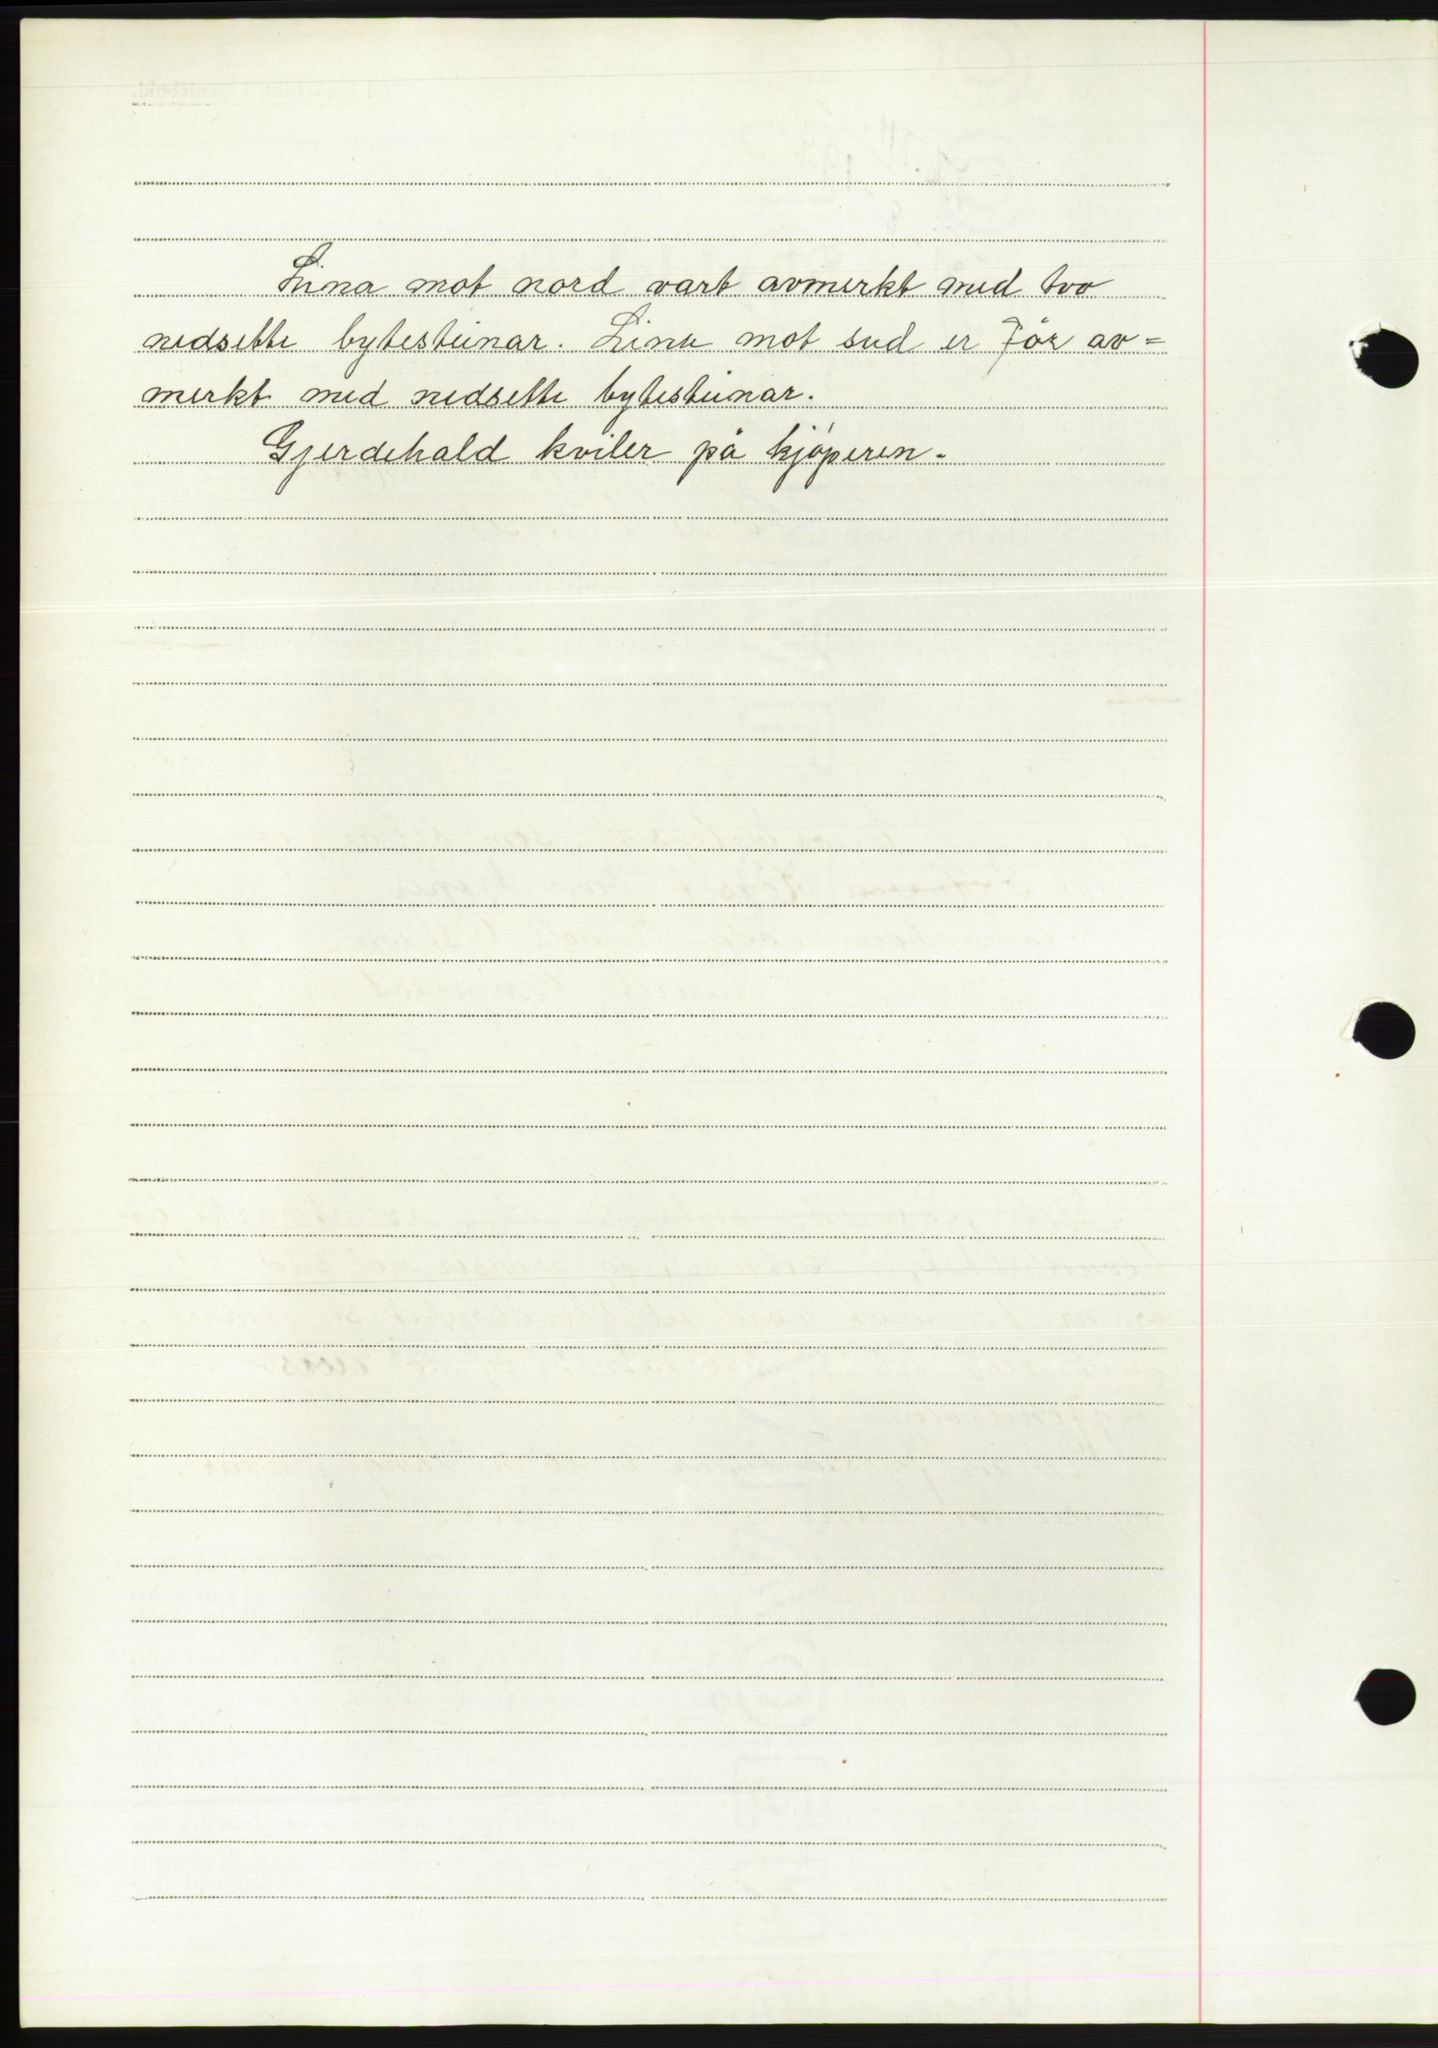 Lina mot nord vart avmerkt med tvo
nedsette bytesteinar. Lina mot sud er før av=
merkt med nedsette bytesteinar.
Gjerdehald kviler på kjøperen.